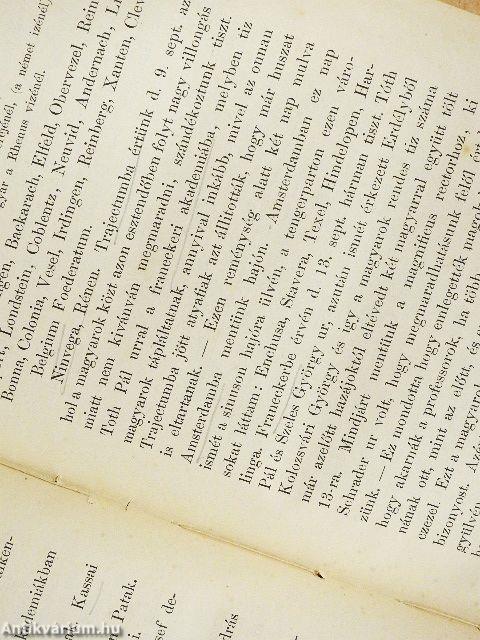 (a német
gyár a Rhenus vizénél.
Backarach, Elfeld, Obervezel, Rein
Lonhstein, Coblentz, Nenvid, Andernach,
Bonna, Colonia, Vesel, Irdingen, Reinberg, Xanten, Clev
Belgium Foederatum.
Nimvega, Rénen. Trajectumba értünk d. 9. sept. az
hol a magyarok közt azon esztendőben folyt nagy villongás
miatt nem kívánván megmaradni, szándékoztunk tiszt.
Toth Pál urral a franeckeri akademiába, melyben tiz
magyarok tápláltatnak, annyival inkább, mivel az onnan
Trajectumba jött atyafiak azt állították, hogy már huszat
is eltartanak. — Ezen reménység alatt két nap mulva
Amsterdamba mentünk hajón. Amsterdamban ez nap
ismét a sinuson hajóra ülvén, a tengerparton ezen váro-
sokat láttam: Enchusa, Stavera, Texel, Hindeloppen, Har-
linga. Franeckerbe érvén d. 13. sept. hárman tiszt. Tóth
Pál és Szeles György ur, azután ismét érkezett Erdélyből
Kolozsvári György és így a magyarok rendes tiz száma
már azelőtt hazájoktól eltévedt két magyarral együtt tölt
13-ra. Mindjárt mentünk a magnificus rectorhoz, ki
Schrader ur volt, hogy megmaradhatásunk felől ért
zünk. — Ez mondotta hogy emlegették magok
hogy akarnák a professorok, ha több
nának ott, mint az előtt, és
ezezel. Ezt a magyar
bizonyost.
gyűlvén
demiákban
Kassai
Patak.
sef de-
drás
Antikvárium.hu